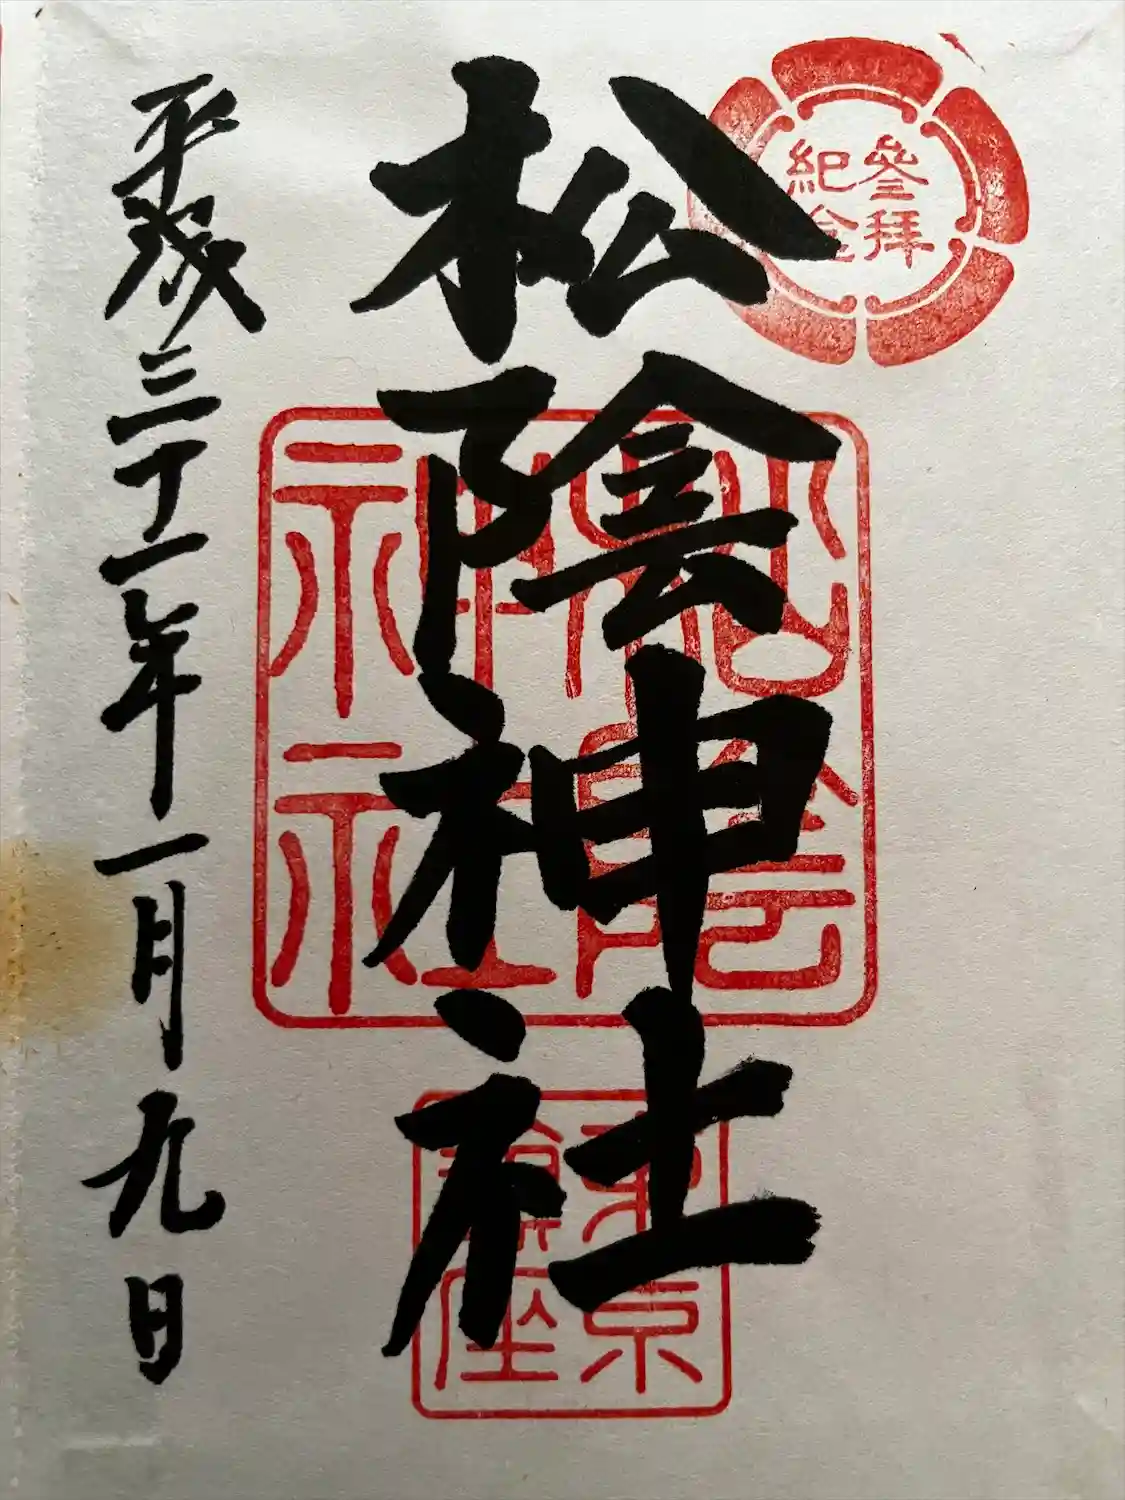 參拝
紀念
松陰神社
松陰
神社
東京
鎮座
平成三十一年一月九日